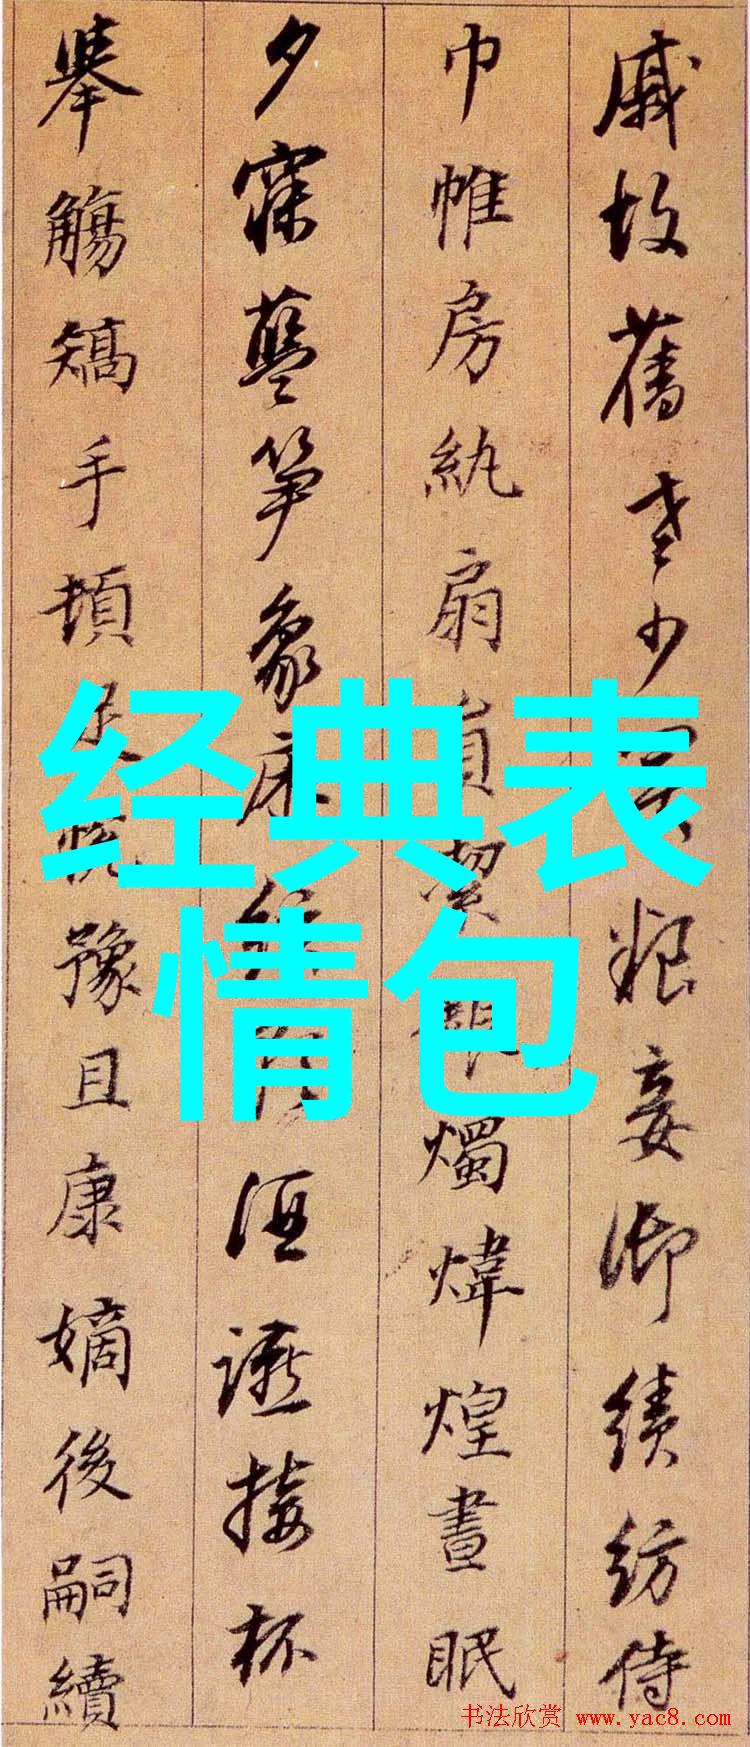 戚故舊老少粮妾御績紡侍
巾帷房紈扇燭煒煌晝眠
夕寐藍笋象床酒讌接杯
舉觴矯手頓豫且康嫡後嗣續
经典表
情包
书法欣赏 www.yac8.com